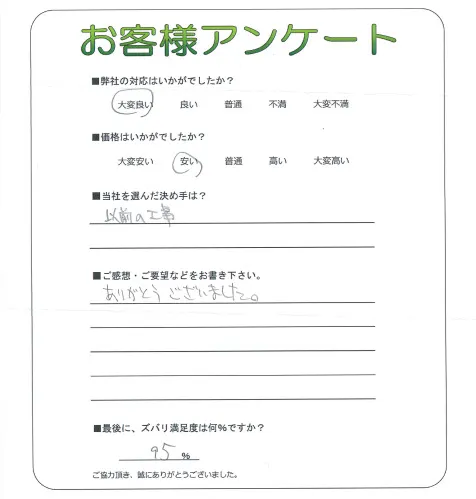 お客様アンケート
■弊社の対応はいかがでしたか？
大変良い 良い 普通 不満 大変不満
■価格はいかがでしたか？
大変安い 安い 普通 高い 大変高い
■当社を選んだ決め手は？
以前の工事
■ご感想・ご要望などをお書き下さい。
ありがとうございました。
■最後に、ズバリ満足度は何%ですか？
95 %
ご協力頂き、誠にありがとうございました。